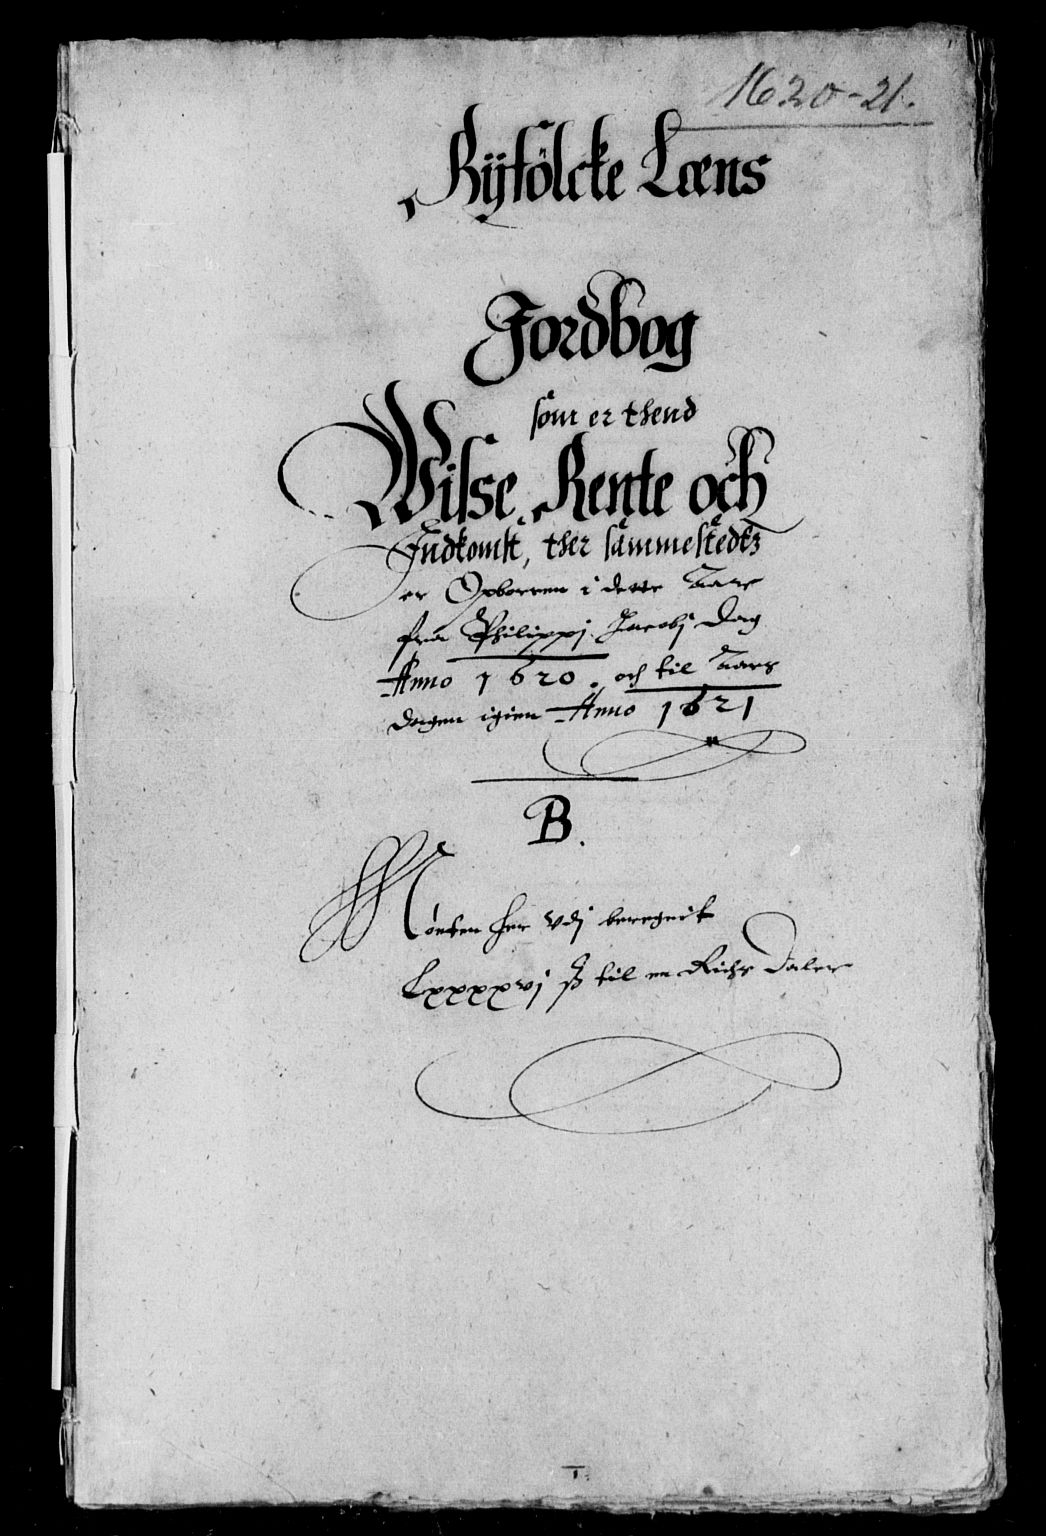 1620-21.
Ryfölcke Læns
Jordbog
som er thend
Wisse Rente och
Indkomst, ther sammestedtz
er Opborren i dette Aar
fra Philippj Jacobj Dag
Anno 1620. och til Aars
dagen igien Anno 1621
B.
Mønten her vdj beregnit
Lxxxxvj ß til en Richs Daler
1.